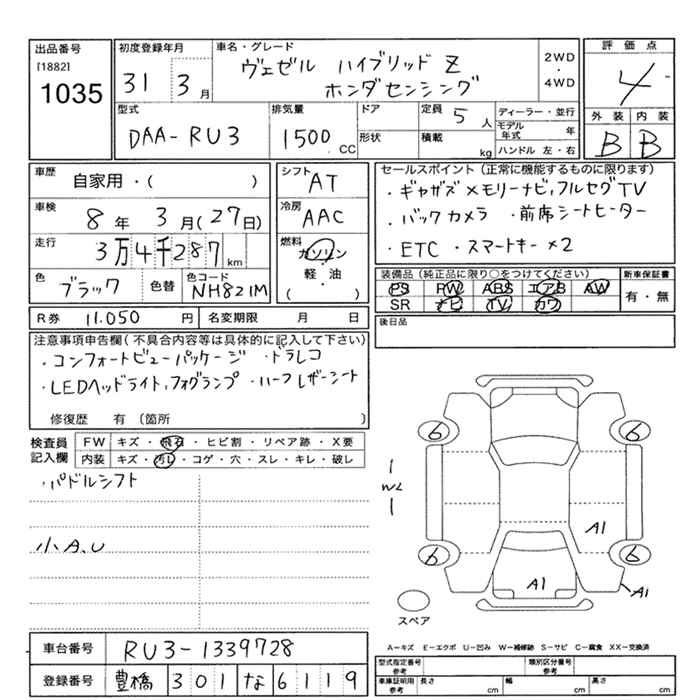 出品番号
[1882]
1035
初度登録年月
31 3月
車名・グレード
ヴェゼル ハイブリッド Z
ホンダセンシング
2WD
・
4WD
評価点
4
外装 内装
B B
型式
DAA-RU3
排気量
1500 .CC
ドア
形状
定員 5 人
積載 kg
ディーラー・並行
モデル年式 年
ハンドル 左・右
車歴
自家用・( )
車検
8年 3月(27日)
走行
3万4千287 km
色
ブラック 色替
色コード
NH821M
シフト
AT
冷房
AAC
燃料
ガソリン
・
軽・油
( )
セールスポイント(正常に機能するものに限ります)
・ギャザズメモリーナビ,フルセグTV
・バックカメラ ・前席シートヒーター
・ETC ・スマートキー×2
装備品(純正品に限り○をつけてください)
PS PW ABS エアB AW
SR ナビ TV カワ
新車保証書
有・無
R券 11.050 円
名変期限 月 日
後日品
注意事項申告欄(不具合内容等は具体的に記入して下さい)
・コンフォートビューパッケージ ・ドラレコ
・LEDヘッドライト,フォグランプ ・ハーフレザーシート
修復歴 有 (箇所 )
検査員記入欄
FW キズ・飛石・ヒビ割・リペア跡・X要
内装 キズ・汚レ・コゲ・穴・スレ・キレ・破レ
・パドルシフト
小A,U
6 6
A1
6 6
A1 A1
スペア
A-キズ E-エクボ U-凹み W-補修跡 S-サビ C-腐食 XX-交換済
車台番号
RU3-1339728
登録番号
豊橋 301 な 6119
型式指定番号
参考
類別区分番号
参考
車庫証明用
参考
長さ cm 幅 cm 高さ cm